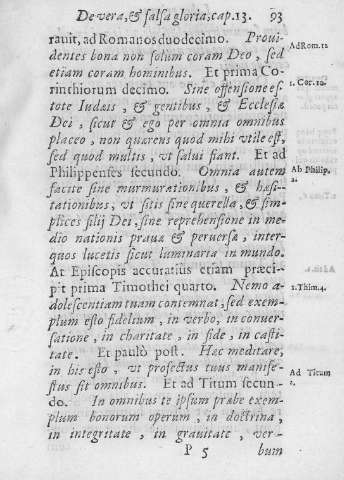 De vera, & falsa gloria, cap. 13. 93
rauit, ad Romanos duodecimo. Proui-
dentes bona non solum coram Deo, sed
etiam coram hominibus. Et prima Co-
rinthiorum decimo. Sine offensione es-
tote Iudæis, & gentibus, & Ecclesiæ
Dei, sicut & ego per omnia omnibus
placeo, non quærens quod mihi vtile est,
sed quod multis, vt salui fiant. Et ad
Philippenses secundo. Omnia autem
facite sine murmurationibus, & hæsi-
tationibus, vt sitis sine querella, & sim-
plices filij Dei, sine reprehensione in me-
dio nationis prauæ & peruersæ, inter-
quos lucetis sicut luminaria in mundo.
At Episcopis accuratius etiam præci-
pit prima Timothei quarto. Nemo a-
dolescentiam tuam contemnat, sed exem-
plum esto fidelium, in verbo, in conuer-
satione, in charitate, in fide, in casti-
tate. Et paulò post. Hæc meditare,
in his esto, vt profectus tuus manife-
stus sit omnibus. Et ad Titum secun-
do. In omnibus te ipsum præbe exem-
plum bonorum operum, in doctrina,
in integritate, in grauitate, ver-
P 5 bum
Ad Rom. 12
1. Cor. 10.
Ab Philip.
2.
1. Thim. 4.
Ad Titum
2.